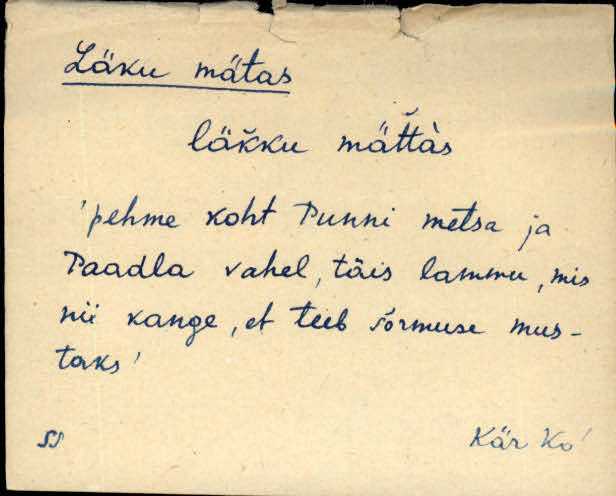 Läku mätas
läkku mät̆tàs
'pehme koht Punni metsa ja
Paadla vahel, täis lammu, mis
nii kange, et teeb sõrmuse mus-
taks'
SS
Kär Ko'